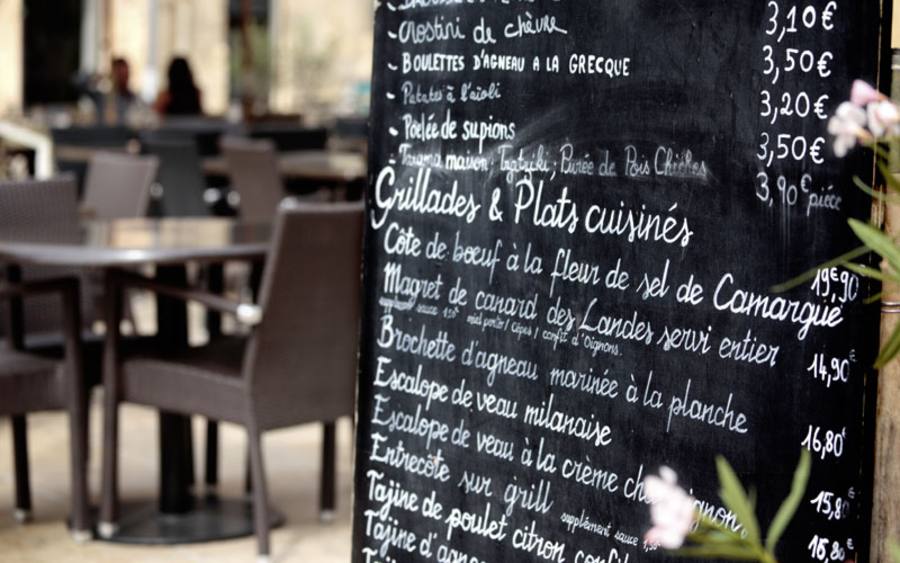 - Crostini de chèvre 3,10€
- BOULETTES D'AGNEAU A LA GRECQUE 3,50€
- Patates à l'aïoli 3,20€
- Poêlée de supions 3,50€
- Tarama maison; Tzatziki; Purée de Pois Chiches 3,90€ pièce
Grillades & Plats cuisinés
Côte de boeuf à la fleur de sel de Camargue 19€90
Magret de canard des Landes servi entier 14,90€
supplément sauce 1,50€ miel porto / Cèpes / confit d'Oignons.
Brochette d'agneau marinée à la planche 16,80€
Escalope de veau milanaise 15,80
Escalope de veau à la crème 15,80
Entrecôte sur grill supplément sauce
Tajine de poulet citron
Tajine